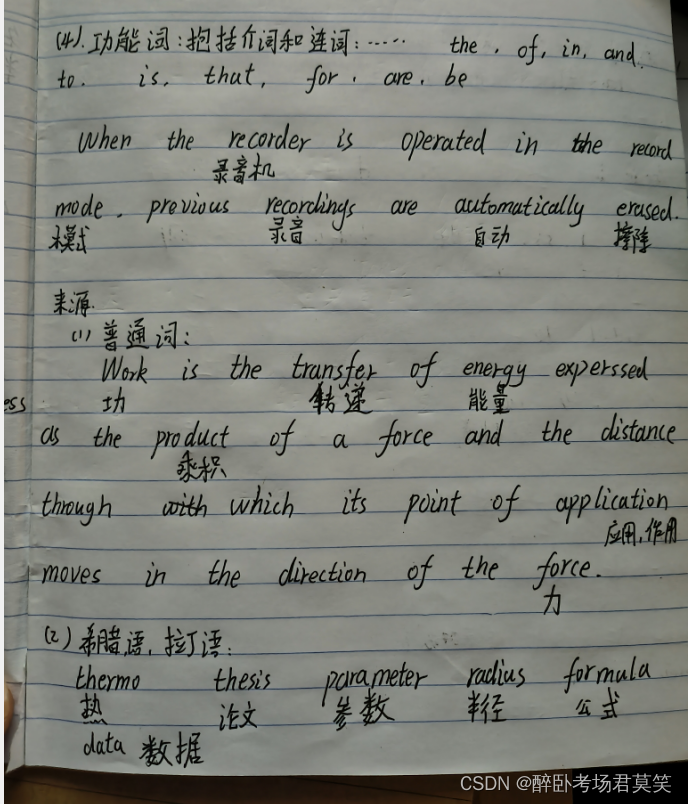 (4).功能词:抱括介词和连词:…… the, of, in, and,
to. is, that, for, are, be
When the recorder is operated in the record
录音机
mode, previous recordings are automatically erased.
模式 录音 自动 擦除
来源.
(1)普通词:
Work is the transfer of energy experssed
ess 功 转递 能量
as the product of a force and the distance
乘积
through with which its point of application
应用,作用
moves in the direction of the force.
力
(2)希腊语,拉丁语:
thermo thesis parameter radius formula
热 论文 参数 半径 公式
data 数据
CSDN @醉卧考场君莫笑